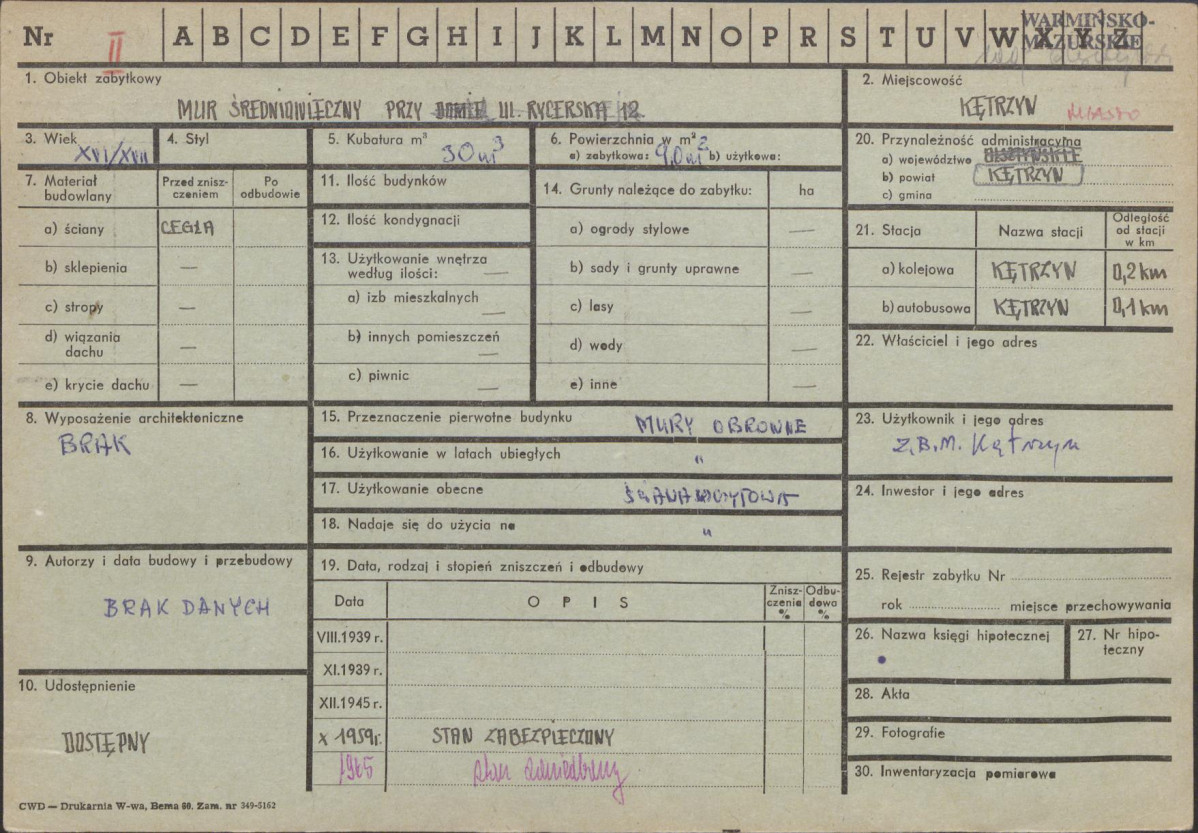 Nr II A B C D E F G H I J K L M N O P R S T U V W X Y Z
WARMIŃSKO-
MAZURSKIE
1. Obiekt zabytkowy
MUR ŚREDNIOWIECZNY PRZY DOMIE UL. RYCERSKA 12
2. Miejscowość
KĘTRZYN MIASTO
3. Wiek
XVI/XVII
4. Styl
5. Kubatura m³
30 m³
6. Powierzchnia w m²
a) zabytkowa: 9,0 m² b) użytkowa:
20. Przynależność administracyjna
a) województwo OLSZTYŃSKIE
b) powiat KĘTRZYN
c) gmina
7. Materiał budowlany
Przed znisz-
czeniem
Po
odbudowie
a) ściany CEGŁA
b) sklepienia —
c) stropy —
d) wiązania
dachu —
e) krycie dachu —
11. Ilość budynków
12. Ilość kondygnacji
13. Użytkowanie wnętrza
według ilości: —
a) izb mieszkalnych —
b) innych pomieszczeń —
c) piwnic —
14. Grunty należące do zabytku: ha
a) ogrody stylowe —
b) sady i grunty uprawne —
c) lasy —
d) wody —
e) inne —
21. Stacja Nazwa stacji
Odległość
od stacji
w km
a) kolejowa KĘTRZYN 0,2 km
b) autobusowa KĘTRZYN 0,1 km
22. Właściciel i jego adres
8. Wyposażenie architektoniczne
BRAK
15. Przeznaczenie pierwotne budynku MURY OBRONNE
16. Użytkowanie w latach ubiegłych "
17. Użytkowanie obecne ŚCIANA SZCZYTOWA
18. Nadaje się do użycia na "
23. Użytkownik i jego adres
Z.B.M. Kętrzyn
24. Inwestor i jego adres
9. Autorzy i data budowy i przebudowy
BRAK DANYCH
10. Udostępnienie
DOSTĘPNY
19. Data, rodzaj i stopień zniszczeń i odbudowy
Data OPIS
Znisz-
czenia
%
Odbu-
dowa
%
VIII.1939 r.
XI.1939 r.
XII.1945 r.
X 1959 r. STAN ZABEZPIECZONY
1965 stan zaniedbany
25. Rejestr zabytku Nr
rok miejsce przechowywania
26. Nazwa księgi hipotecznej
27. Nr hipo-
teczny
28. Akta
29. Fotografie
30. Inwentaryzacja pomiarowa
CWD — Drukarnia W-wa, Bema 60. Zam. nr 349-5162